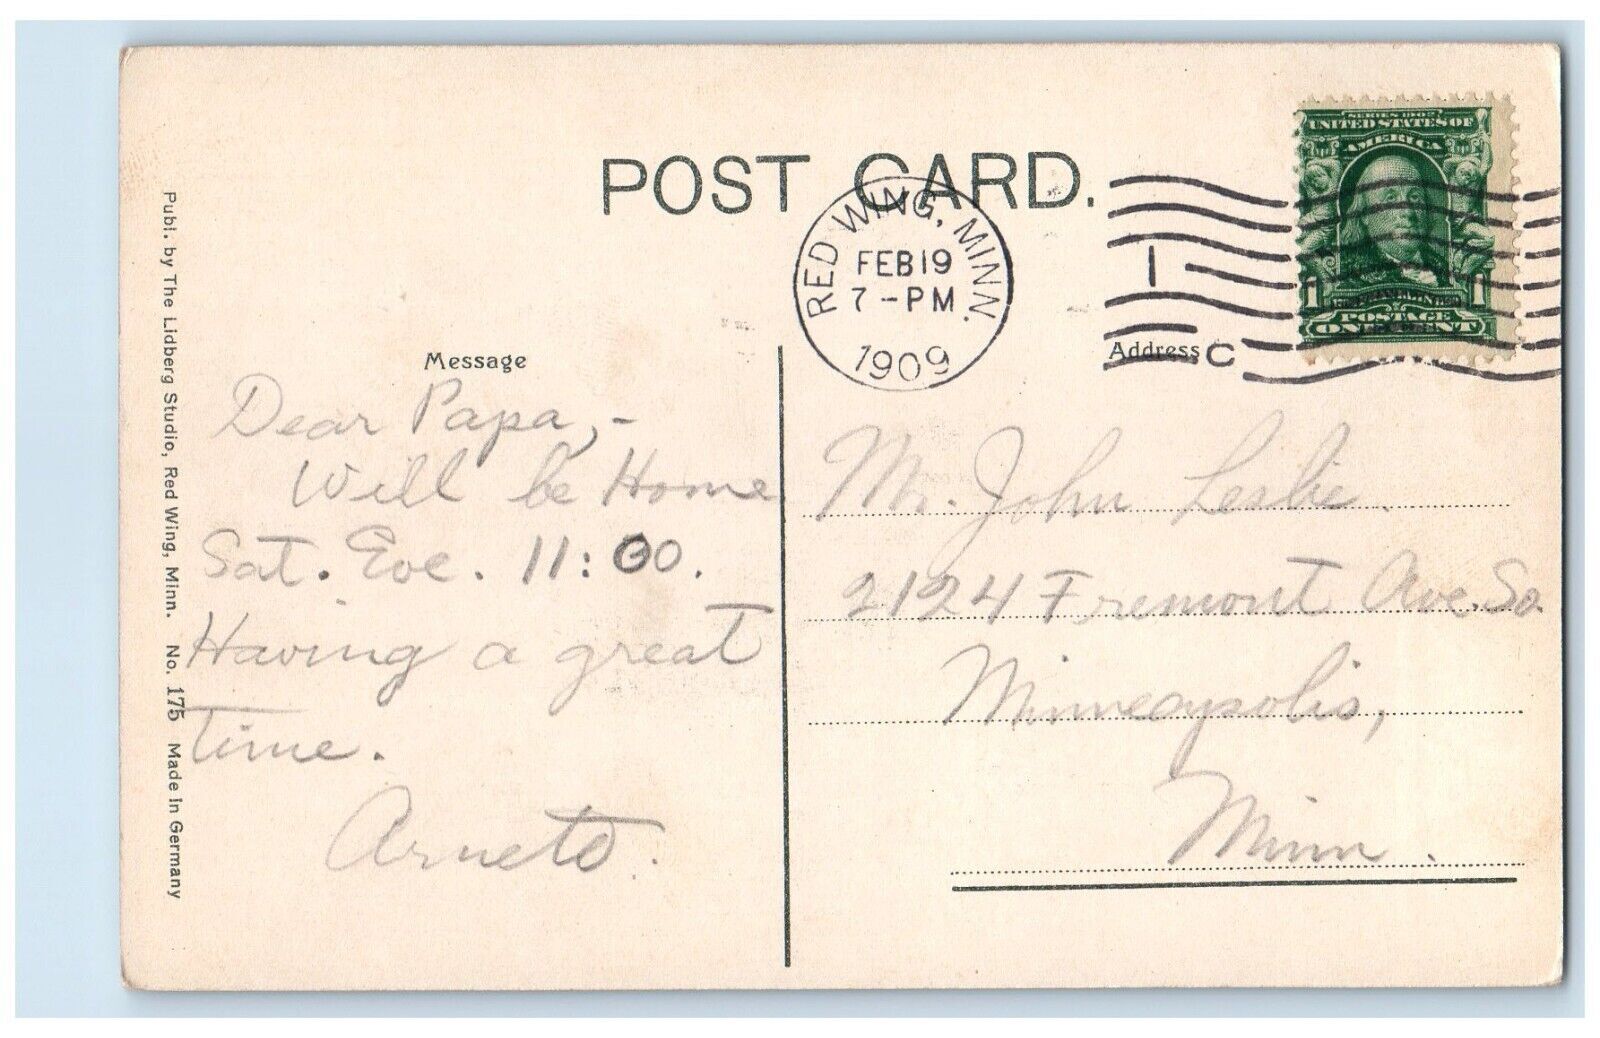 POST CARD.
RED WING, MINN.
FEB 19
7-PM
1909
1
C
SERIES 1902
UNITED STATES OF
AMERICA
1 1
POSTAGE
ONE CENT
Message
Address
Dear Papa,-
Will be Home
Sat. Eve. 11:00.
Having a great
time.
Mr. John Leslie.
2124 Fremont Ave. So.
Minneapolis,
Minn.
Publ. by The Lidberg Studio, Red Wing, Minn. No. 175 Made in Germany